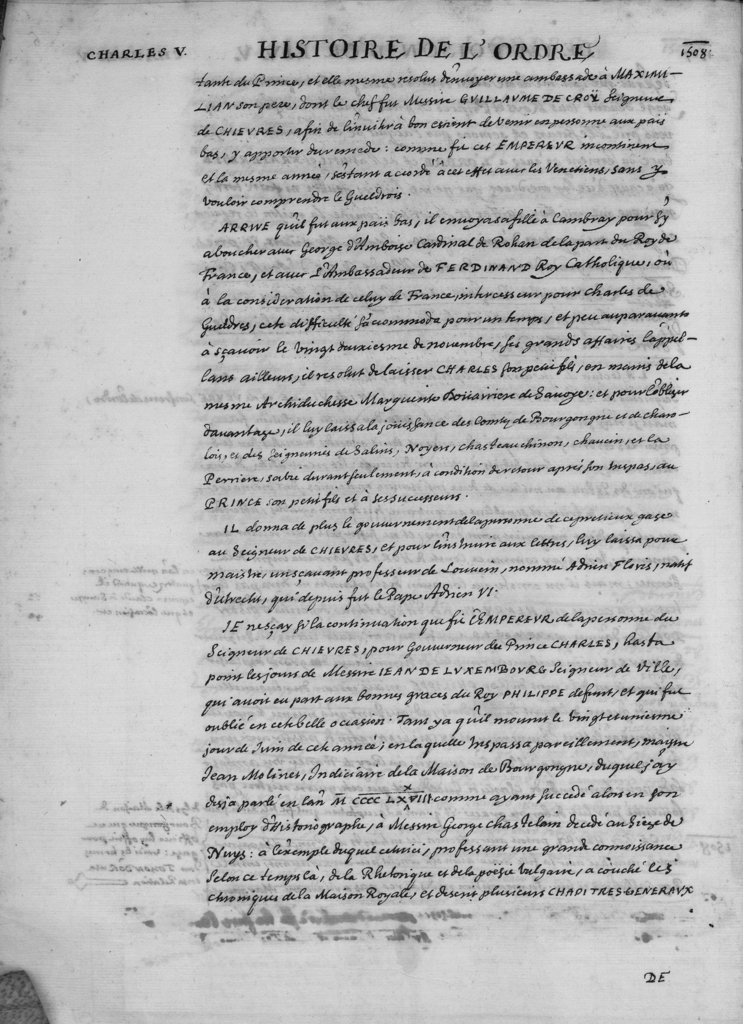 CHARLES V. HISTOIRE DE L'ORDRE 1508
tante du Prince, et elle mesme resolut d'envoyer une ambassade à MAXIMI-
LIAN son pere, dont le chef fut Messire GUILLAVME DE CROŸ Seigneur
de CHIEVRES, afin de l'inviter à bon escient de venir en personne aux pais
bas, y apporter du remede: comme fit cet EMPEREVR incontinent
et la mesme année, s'estant acordé à cet effet avec les Venetiens, sans y
vouloir comprendre le Gueldrois.
ARRIVÉ qu'il fut aux pais bas, il envoya sa fille à Cambray pour s'y
aboucher avec George d'Amboise Cardinal de Rohan de la part du Roy de
France, et avec l'Ambassadeur de FERDINAND Roy Catholique, où
à la consideration de celuy de France, intercesseur pour Charles de
Gueldres, cete difficulté s'acommoda pour un temps, et peu auparavant
à sçavoir le vingt deuxiesme de novembre, ses grands affaires l'appel-
lans ailleurs, il resolut de laisser CHARLES son petit fils, en mains de la
mesme Archiduchesse Marguerite Doüairiere de Savoye: et pour l'obliger
davantage, il luy laissa la joüissance des Comtez de Bourgongne et de Charo-
lois, et des Seigneuries de Salins, Noyers, Chasteau chinon, Chaucin, et la
Perriere, sa vie durant seulement, à condition de retour aprés son trespas, au
PRINCE son petit fils et à ses successeurs.
IL donna de plus le gouvernement de la personne de ce pretieux gage
au Seigneur de CHIEVRES, et pour l'instruire aux lettres, luy laissa pour
maistre, un sçavant professeur de Louvein, nommé Adrien Floris, natif
d'Utrecht, qui depuis fut le Pape Adrien VI.
JE ne sçay si la continuation que fit l'EMPEREVR de la personne du
Seigneur de CHIEVRES, pour Gouverneur du Prince CHARLES, hasta
point les jours de Messire IEAN DE LVXEMBOURG Seigneur de Ville,
qui avoit eu part aux bonnes graces du Roy PHILIPPE defunt, et qui fut
oublié en cete belle occasion. Tant y a qu'il mourut le vingt et uniesme
jour de Juin de cete année; en laquelle trespassa pareillement, maistre
Jean Molinet, Indiciaire de la Maison de Bourgongne, duquel j'ay
desja parlé en l'an M CCCC LXXVIII comme ayant succedé alors en son
employ d'Historiographe, à Messire George Chastelain decedé au Siege de
Nuys: à l'exemple duquel cetuici, professant une grande connoissance
selon ce temps là, de la Rhetorique et de la poësie vulgaire, a couché les
chroniques de la Maison Royale, et descrit plusieurs CHAPITRES GENERAVX
DE